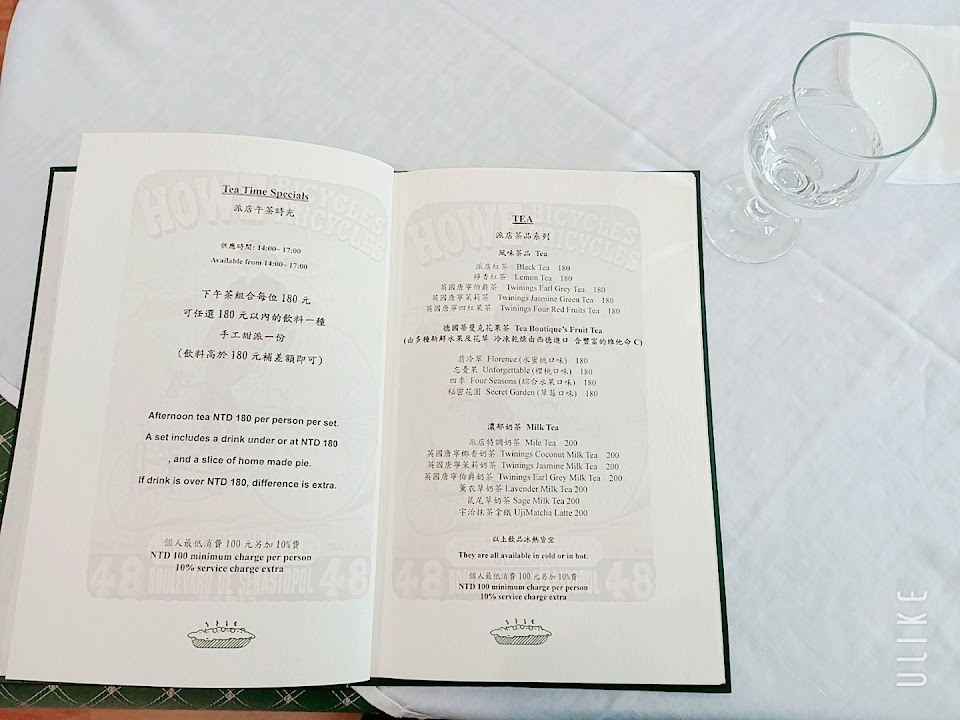 Tea Time Specials
派店午茶時光
供應時間: 14:00~ 17:00
Available from 14:00~ 17:00
下午茶組合每位 180 元
可任選 180 元以內的飲料一種
手工甜派一份
(飲料高於 180 元補差額即可)
Afternoon tea NTD 180 per person per set.
A set includes a drink under or at NTD 180
, and a slice of home made pie.
If drink is over NTD 180, difference is extra.
個人最低消費 100 元另加 10%費
NTD 100 minimum charge per person
10% service charge extra
HOWE BICYCLES
BICYCLES
48 48
TEA
派店茶品系列
風味茶品 Tea
派店紅茶 Black Tea 180
檸香紅茶 Lemon Tea 180
英國唐寧伯爵茶 Twinings Earl Grey Tea 180
英國唐寧茉莉茶 Twinings Jasmine Green Tea 180
英國唐寧四紅果茶 Twinings Four Red Fruits Tea 180
德國蒂曼克花果茶 Tea Boutique's Fruit Tea
(由多種新鮮水果及花草 冷凍乾燥由西德進口 含豐富的維他命 C)
翡冷翠 Florence (水蜜桃口味) 180
忘憂果 Unforgettable (櫻桃口味) 180
四季 Four Seasons (綜合水果口味) 180
秘密花園 Secret Garden (草莓口味) 180
濃郁奶茶 Milk Tea
派店特調奶茶 Mile Tea 200
英國唐寧椰香奶茶 Twinings Coconut Milk Tea 200
英國唐寧茉莉奶茶 Twinings Jasmine Milk Tea 200
英國唐寧伯爵奶茶 Twinings Earl Grey Milk Tea 200
薰衣草奶茶 Lavender Milk Tea 200
鼠尾草奶茶 Sage Milk Tea 200
宇治抹茶拿鐵 UjiMatcha Latte 200
以上飲品冰熱皆宜
They are all available in cold or in hot.
個人最低消費 100 元另加 10%費
NTD 100 minimum charge per person
10% service charge extra
HOWE BICYCLES
BICYCLES
48 48
ULIKE